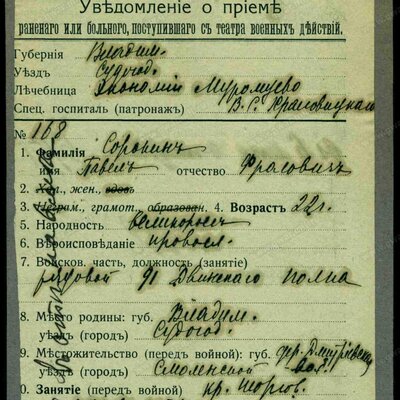 Увѣдомленіе о пріемѣ
раненаго или больного, поступившаго съ театра военныхъ дѣйствій.
Губернія Владим.
Уѣздъ Судогод.
Лѣчебница Экономіи Муромцево
Спец. госпиталь (патронажъ) В. С. Храповицкаго
№ 168
1. Фамилія Сорокинъ
имя Павелъ отчество
2. Хол., жен., вдовъ
3. Неграм., грамот., образован. 4. Возрастъ 22 г.
5. Народность великороссъ
6. Вѣроисповѣданіе правосл.
7. Войсков. часть, должность (занятіе)
рядовой 91 Двинскаго полка
8. Мѣсто родины: губ. Владим.
уѣздъ (городъ) Судогод.
9. Мѣстожительство (передъ войной): губ. дер. Дмитріевская
уѣздъ (городъ) вол.
0. Занятіе (передъ войной) кр.